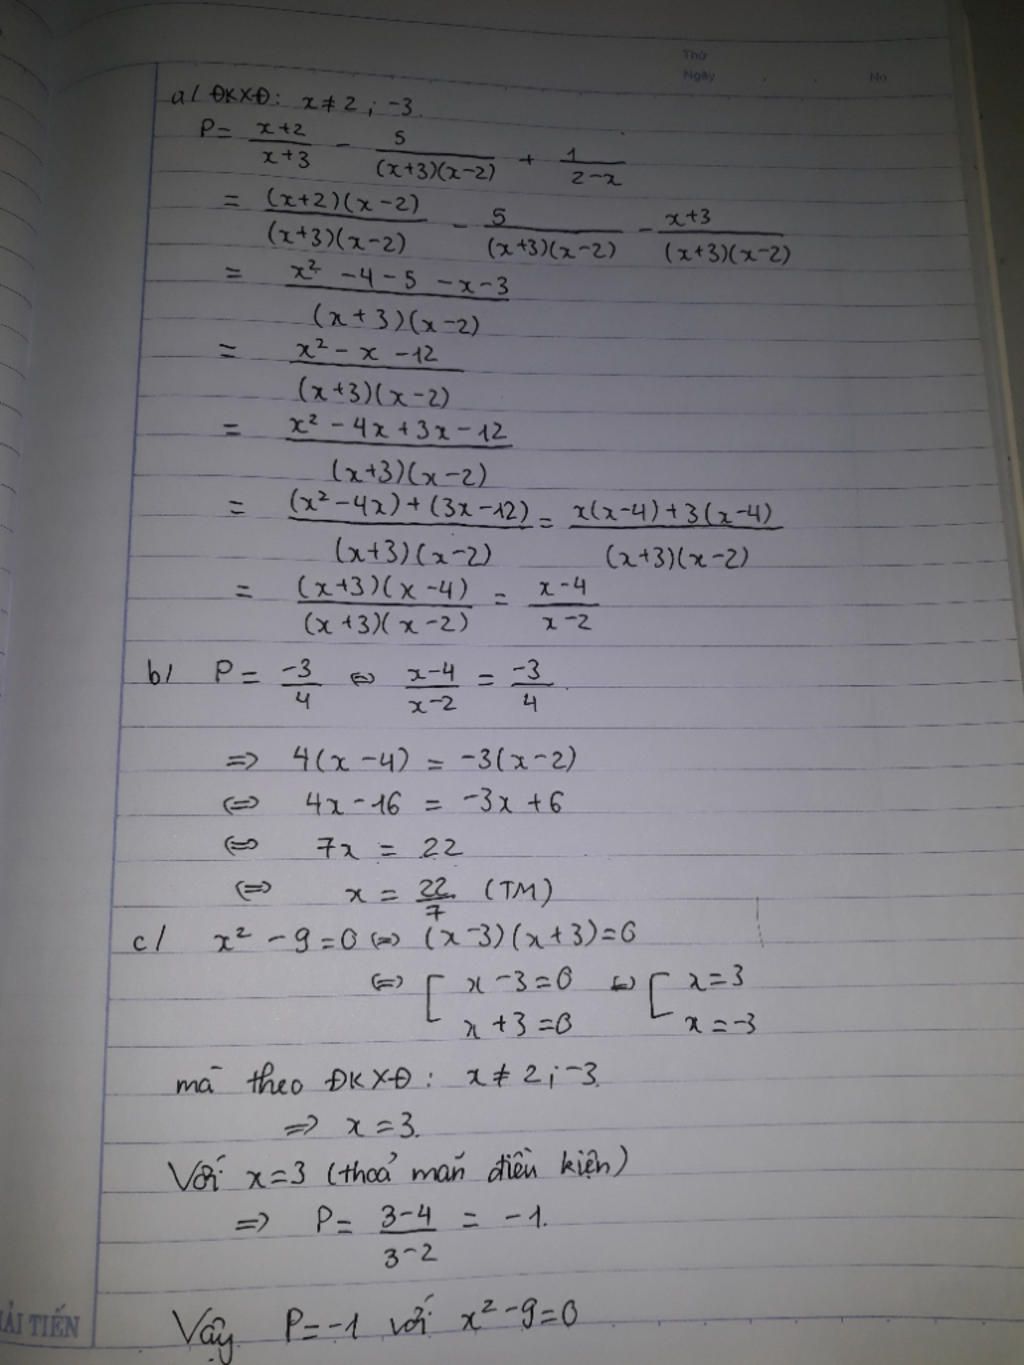 Thứ
Ngày . . No
a/ ĐKXĐ: x ≠ 2 ; -3.
P = (x+2)/(x+3) - 5/((x+3)(x-2)) + 1/(2-x)
= ((x+2)(x-2))/((x+3)(x-2)) - 5/((x+3)(x-2)) - (x+3)/((x+3)(x-2))
= (x² - 4 - 5 - x - 3)/((x+3)(x-2))
= (x² - x - 12)/((x+3)(x-2))
= (x² - 4x + 3x - 12)/((x+3)(x-2))
= ((x² - 4x) + (3x - 12))/((x+3)(x-2)) = (x(x-4) + 3(x-4))/((x+3)(x-2))
= ((x+3)(x-4))/((x+3)(x-2)) = (x-4)/(x-2)
b/ P = -3/4 ⇔ (x-4)/(x-2) = -3/4
⇒ 4(x-4) = -3(x-2)
⇔ 4x - 16 = -3x + 6
⇔ 7x = 22
⇔ x = 22/7 (TM)
c/ x² - 9 = 0 ⇔ (x-3)(x+3) = 0
⇔ [ x - 3 = 0 ⇔ [ x = 3
x + 3 = 0 x = -3
mà theo ĐKXĐ: x ≠ 2 ; -3
⇒ x = 3.
Với x = 3 (thoả mãn điều kiện)
⇒ P = (3-4)/(3-2) = -1.
Vậy P = -1 với x² - 9 = 0
ẢI TIẾN